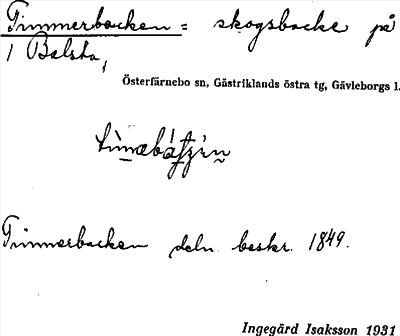 Timmerbacken = skogsbacke på
1 Balsta,
Österfärnebo sn, Gästriklands östra tg, Gävleborgs l.
Timmerbacken deln. beskr. 1849.
Ingegärd Isaksson 1931